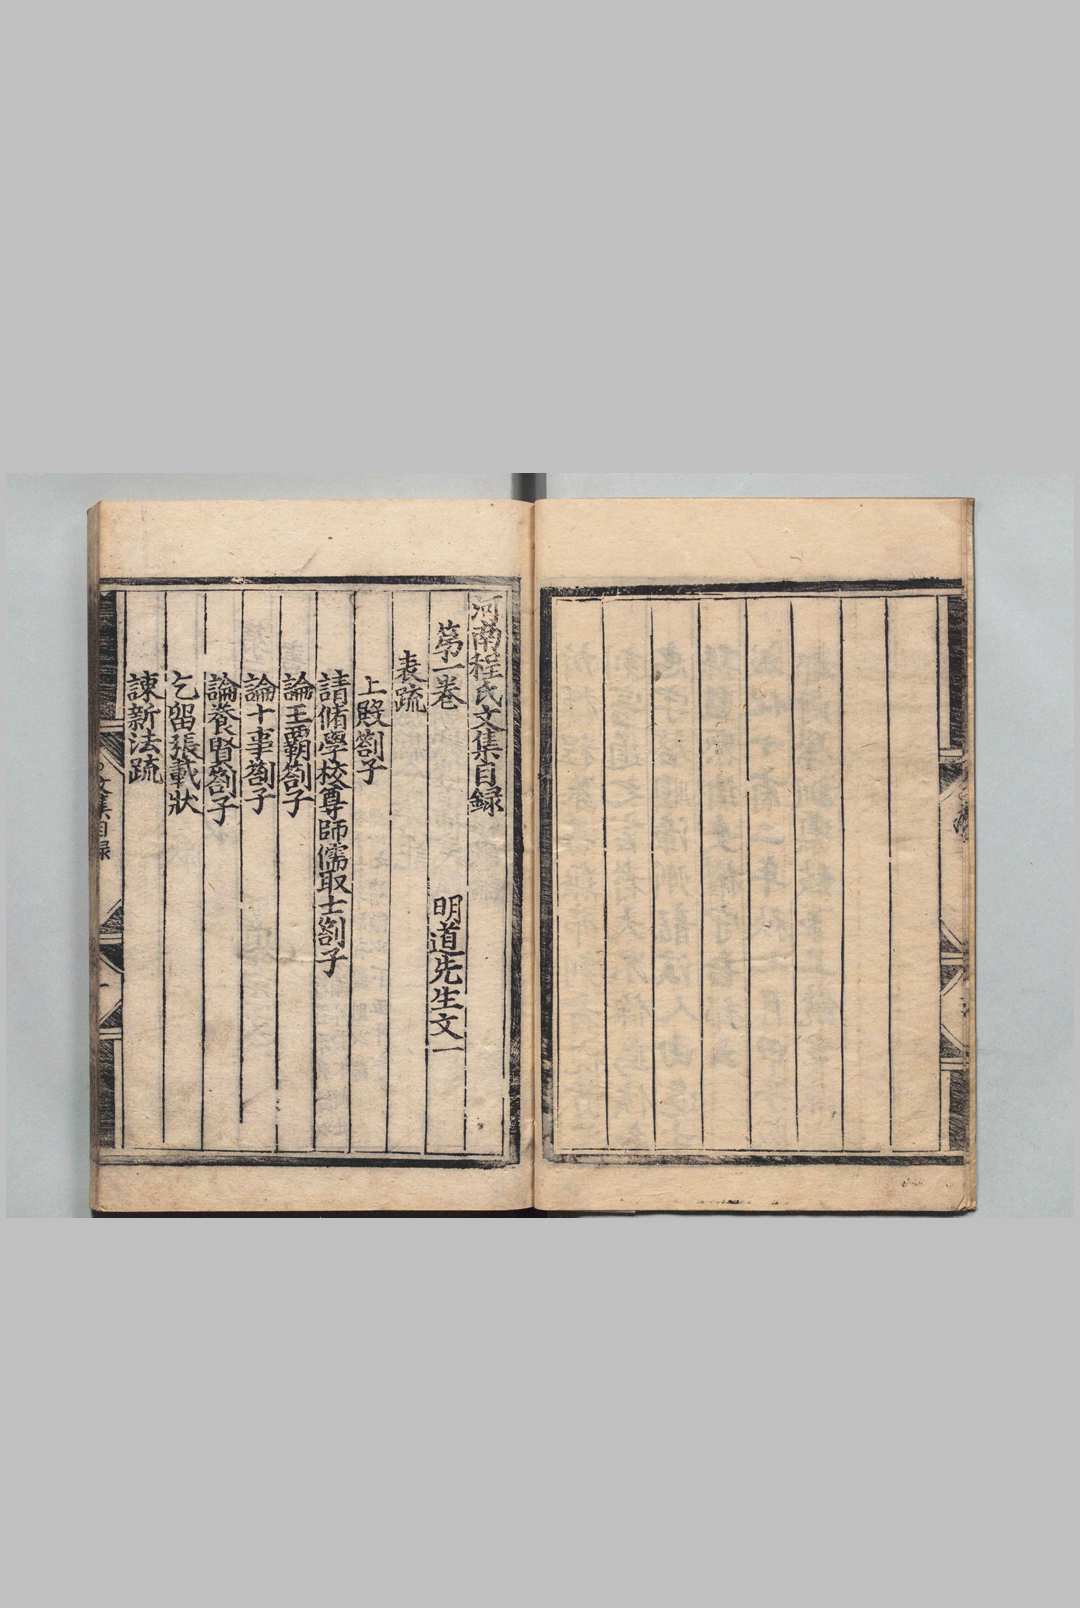 河南程氏文集目録
第一卷 明道先生文一
表疏
上殿劄子
請脩學校尊師儒取士劄子
論王霸劄子
論十事劄子
論養賢劄子
乞留張載狀
諫新法疏
文集目録